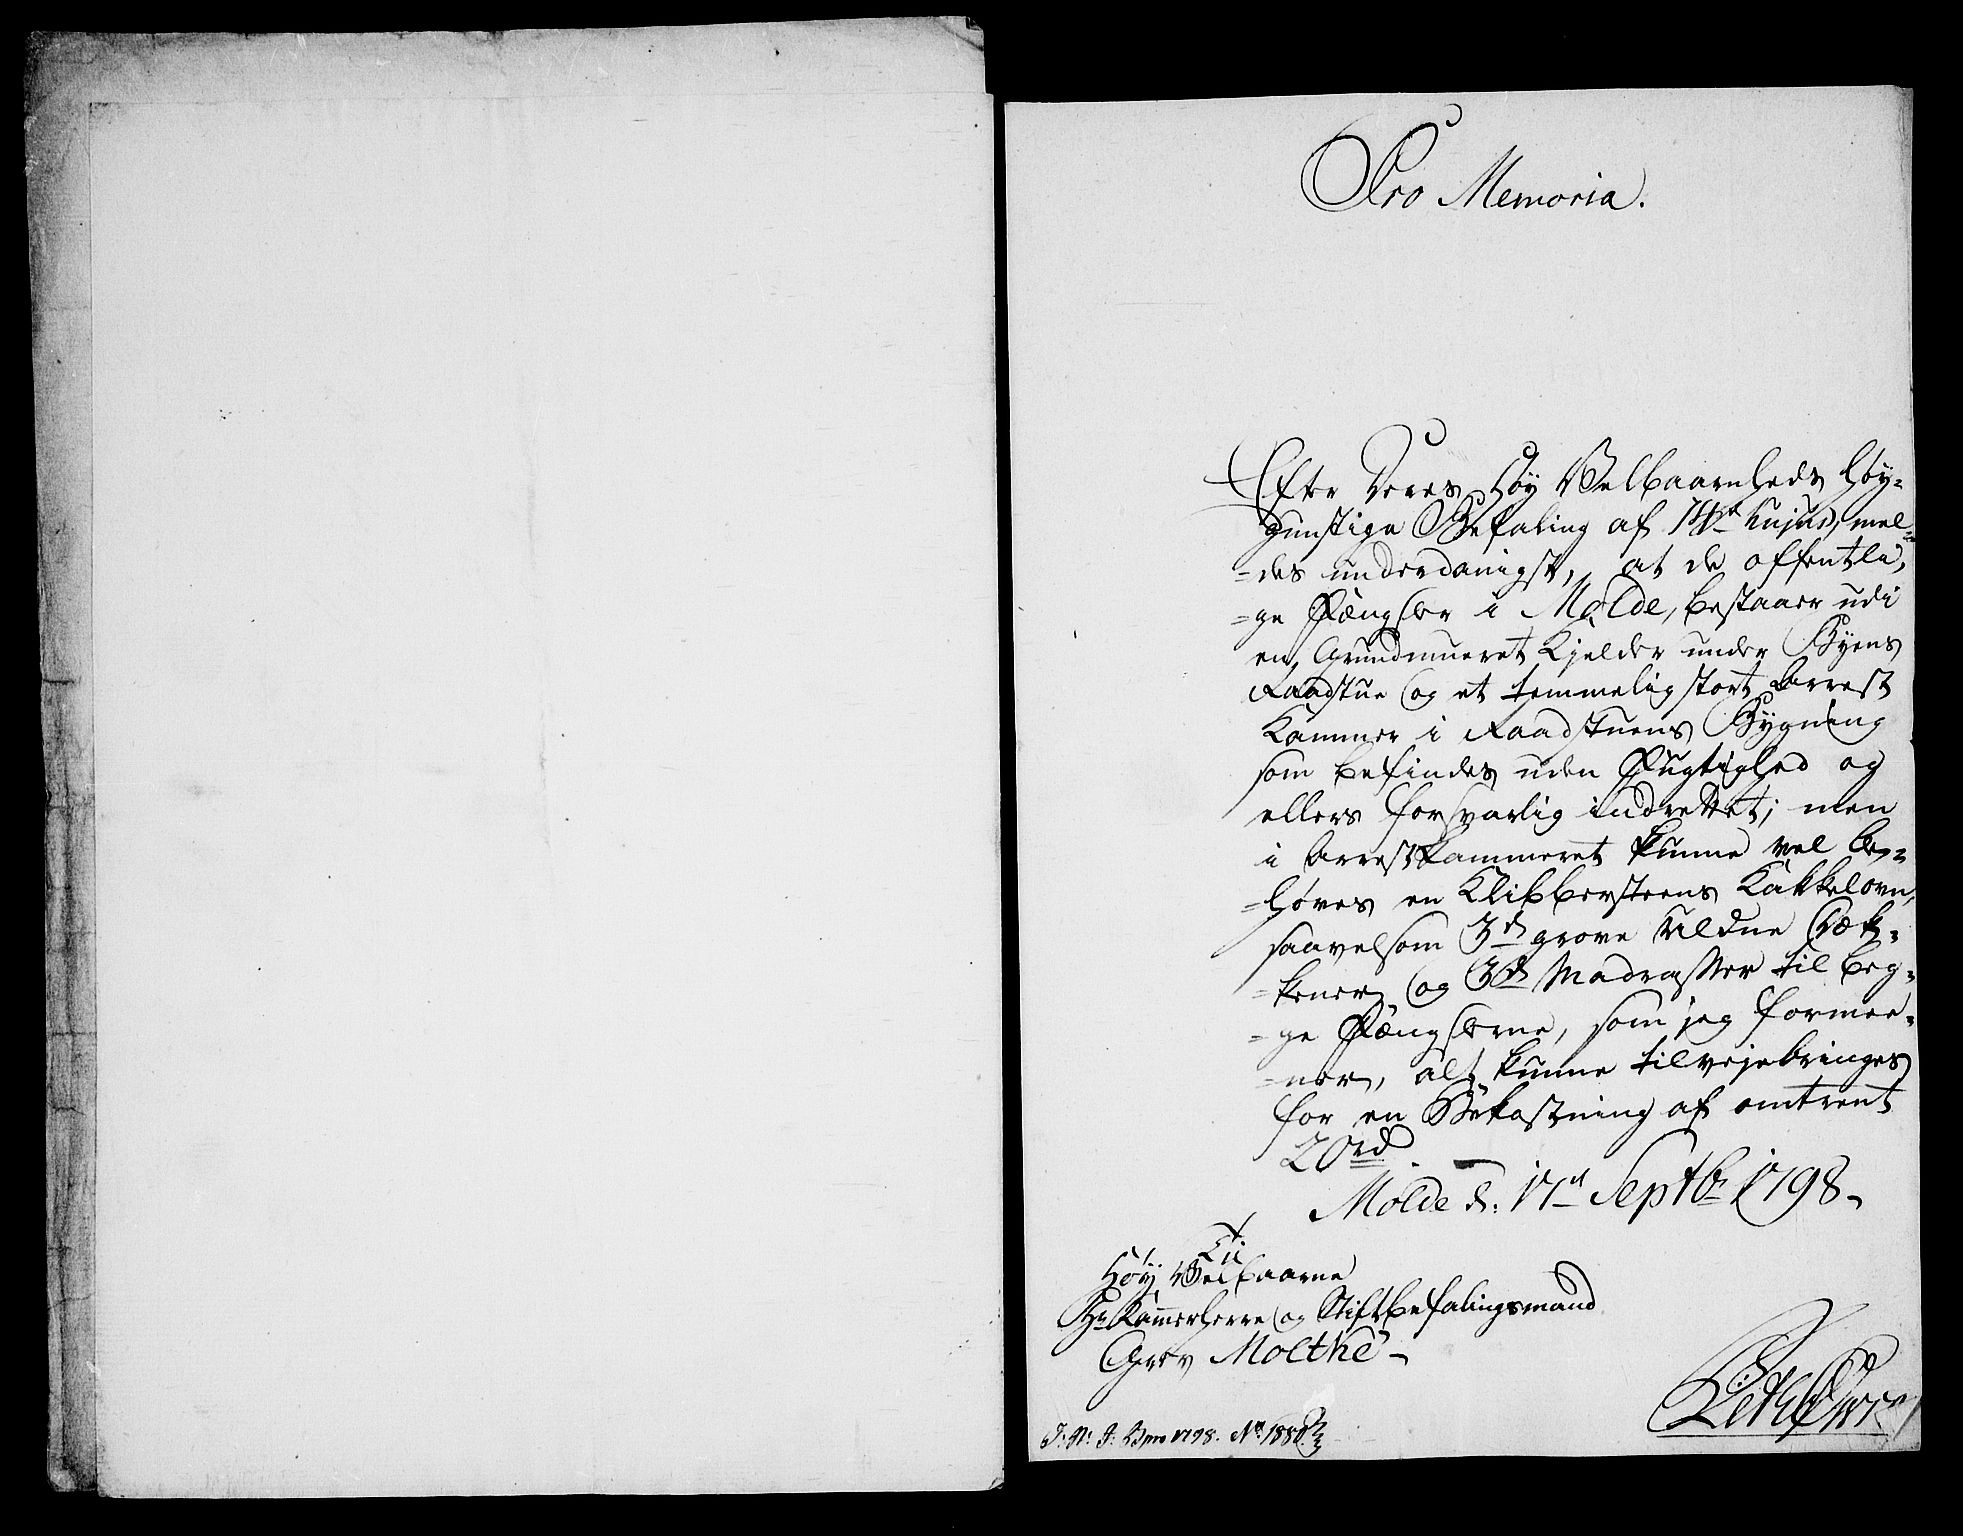 Pro Memoria.
Efter Deres Høy Velbaarenheds Høy=
gunstige Befaling af 14de hujus, mel=
=des underdanigst, at de offentli,
=ge Fængsler i Molde, bestaaer udi
en Grundmueret Kjelder under Byens
Raadstue og et temmelig stort Arrest
Kammer i Raadstuens Bygning
som befindes uden Fugtighed og
ellers forsvarlig indrettet; men
i Arrestkammeret kunne vel be=
=høves en Klibbersteens Kakkelovn,
saavelsom 3de grove uldne Dæk=
=kener og 3de Madrasser til beg=
=ge Fængslerne, som jeg formee=
=ner, alt kunne tilvejebringes
for en Bekostning af omtrent
20rd.
Molde d: 17de Septbr 1798
Til
Høy Velbaarne
Hr Kammerherre og Stiftbefalingsmand
Grev Molthe
J: N: J: 1798. No 1880